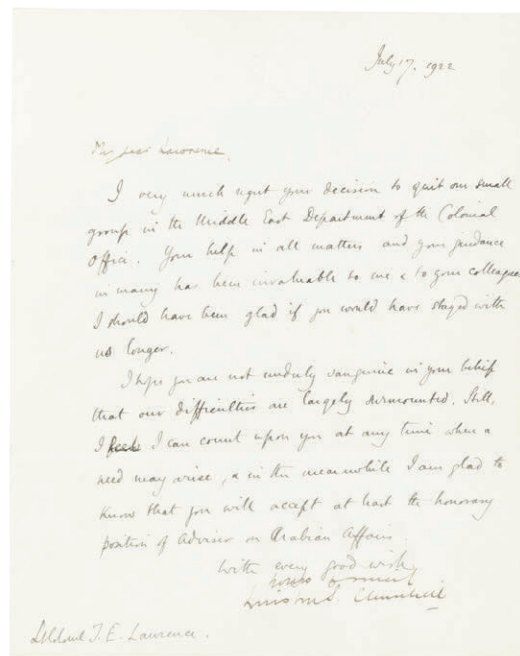 July 17. 1922
My dear Lawrence,
I very much regret your decision to quit our small
group in the Middle East Department of the Colonial
Office. Your help in all matters and your guidance
in many has been invaluable to me & to your colleagues
I should have been glad if you would have stayed with
us longer.
I hope you are not unduly sanguine in your belief
that our difficulties are largely surmounted. Still,
I feel I can count upon you at any time when a
need may arise, & in the meanwhile I am glad to
know that you will accept at least the honorary
position of Adviser on Arabian Affairs.
With every good wish,
Yours
Winston S. Churchill
Lt Colonel T. E. Lawrence.